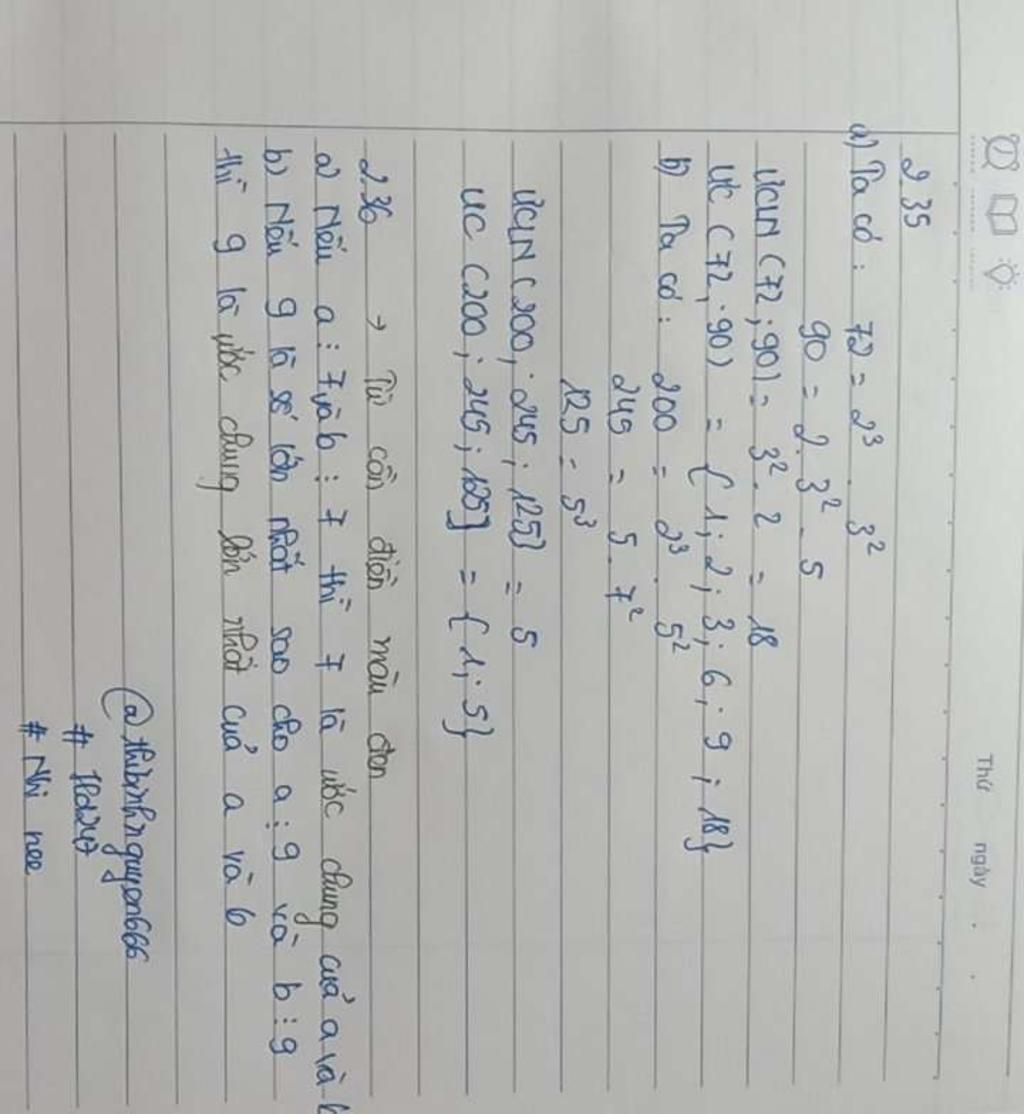 Thứ ngày . .
2.35
a) Ta có : 72 = 2³ . 3²
90 = 2 . 3² . 5
ƯCLN (72 ; 90) = 3² . 2 = 18
ƯC (72 ; 90) = { 1 ; 2 ; 3 ; 6 ; 9 ; 18}
b) Ta có : 200 = 2³ . 5²
245 = 5 . 7²
125 = 5³
ƯCLN (200 ; 245 ; 125) = 5
ƯC (200 ; 245 ; 125) = { 1 ; 5}
2.36 → Từ cần điền màu đen
a) Nếu a ⋮ 7 và b ⋮ 7 thì 7 là ước chung của a và b
b) Nếu 9 là số lớn nhất sao cho a ⋮ 9 và b ⋮ 9
thì 9 là ước chung lớn nhất của a và b
@thibinhnguyen666
# Hd247
# Nhi nee